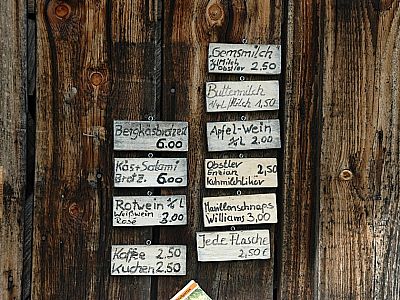 Bergkäsbrotzeit
6.00
Käs + Salami
Brotz. 6.00
Rotwein ¼ L
Weißwein
Rosé 3,00
Kaffee 2.50
Kuchen 2.50
"Gemsmilch"
Milch
Obstler 2.50
Buttermilch
¼ L /Milch 1,50
Apfel-Wein
¼ L 2.00
Obstler
Enzian 2,50
Kuhmilchlikör
Marillenschnaps
Williams 3,00
Jede Flasche
2,50 €